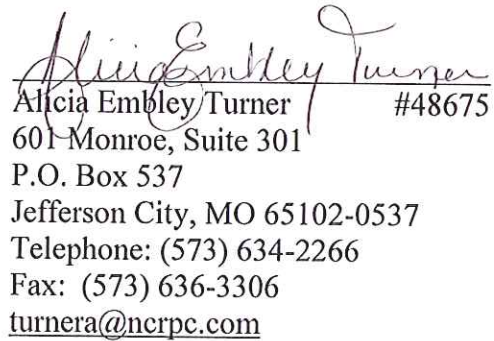 Alicia Embley Turner
Alicia Embley Turner #48675
601 Monroe, Suite 301
P.O. Box 537
Jefferson City, MO 65102-0537
Telephone: (573) 634-2266
Fax: (573) 636-3306
turnera@ncrpc.com